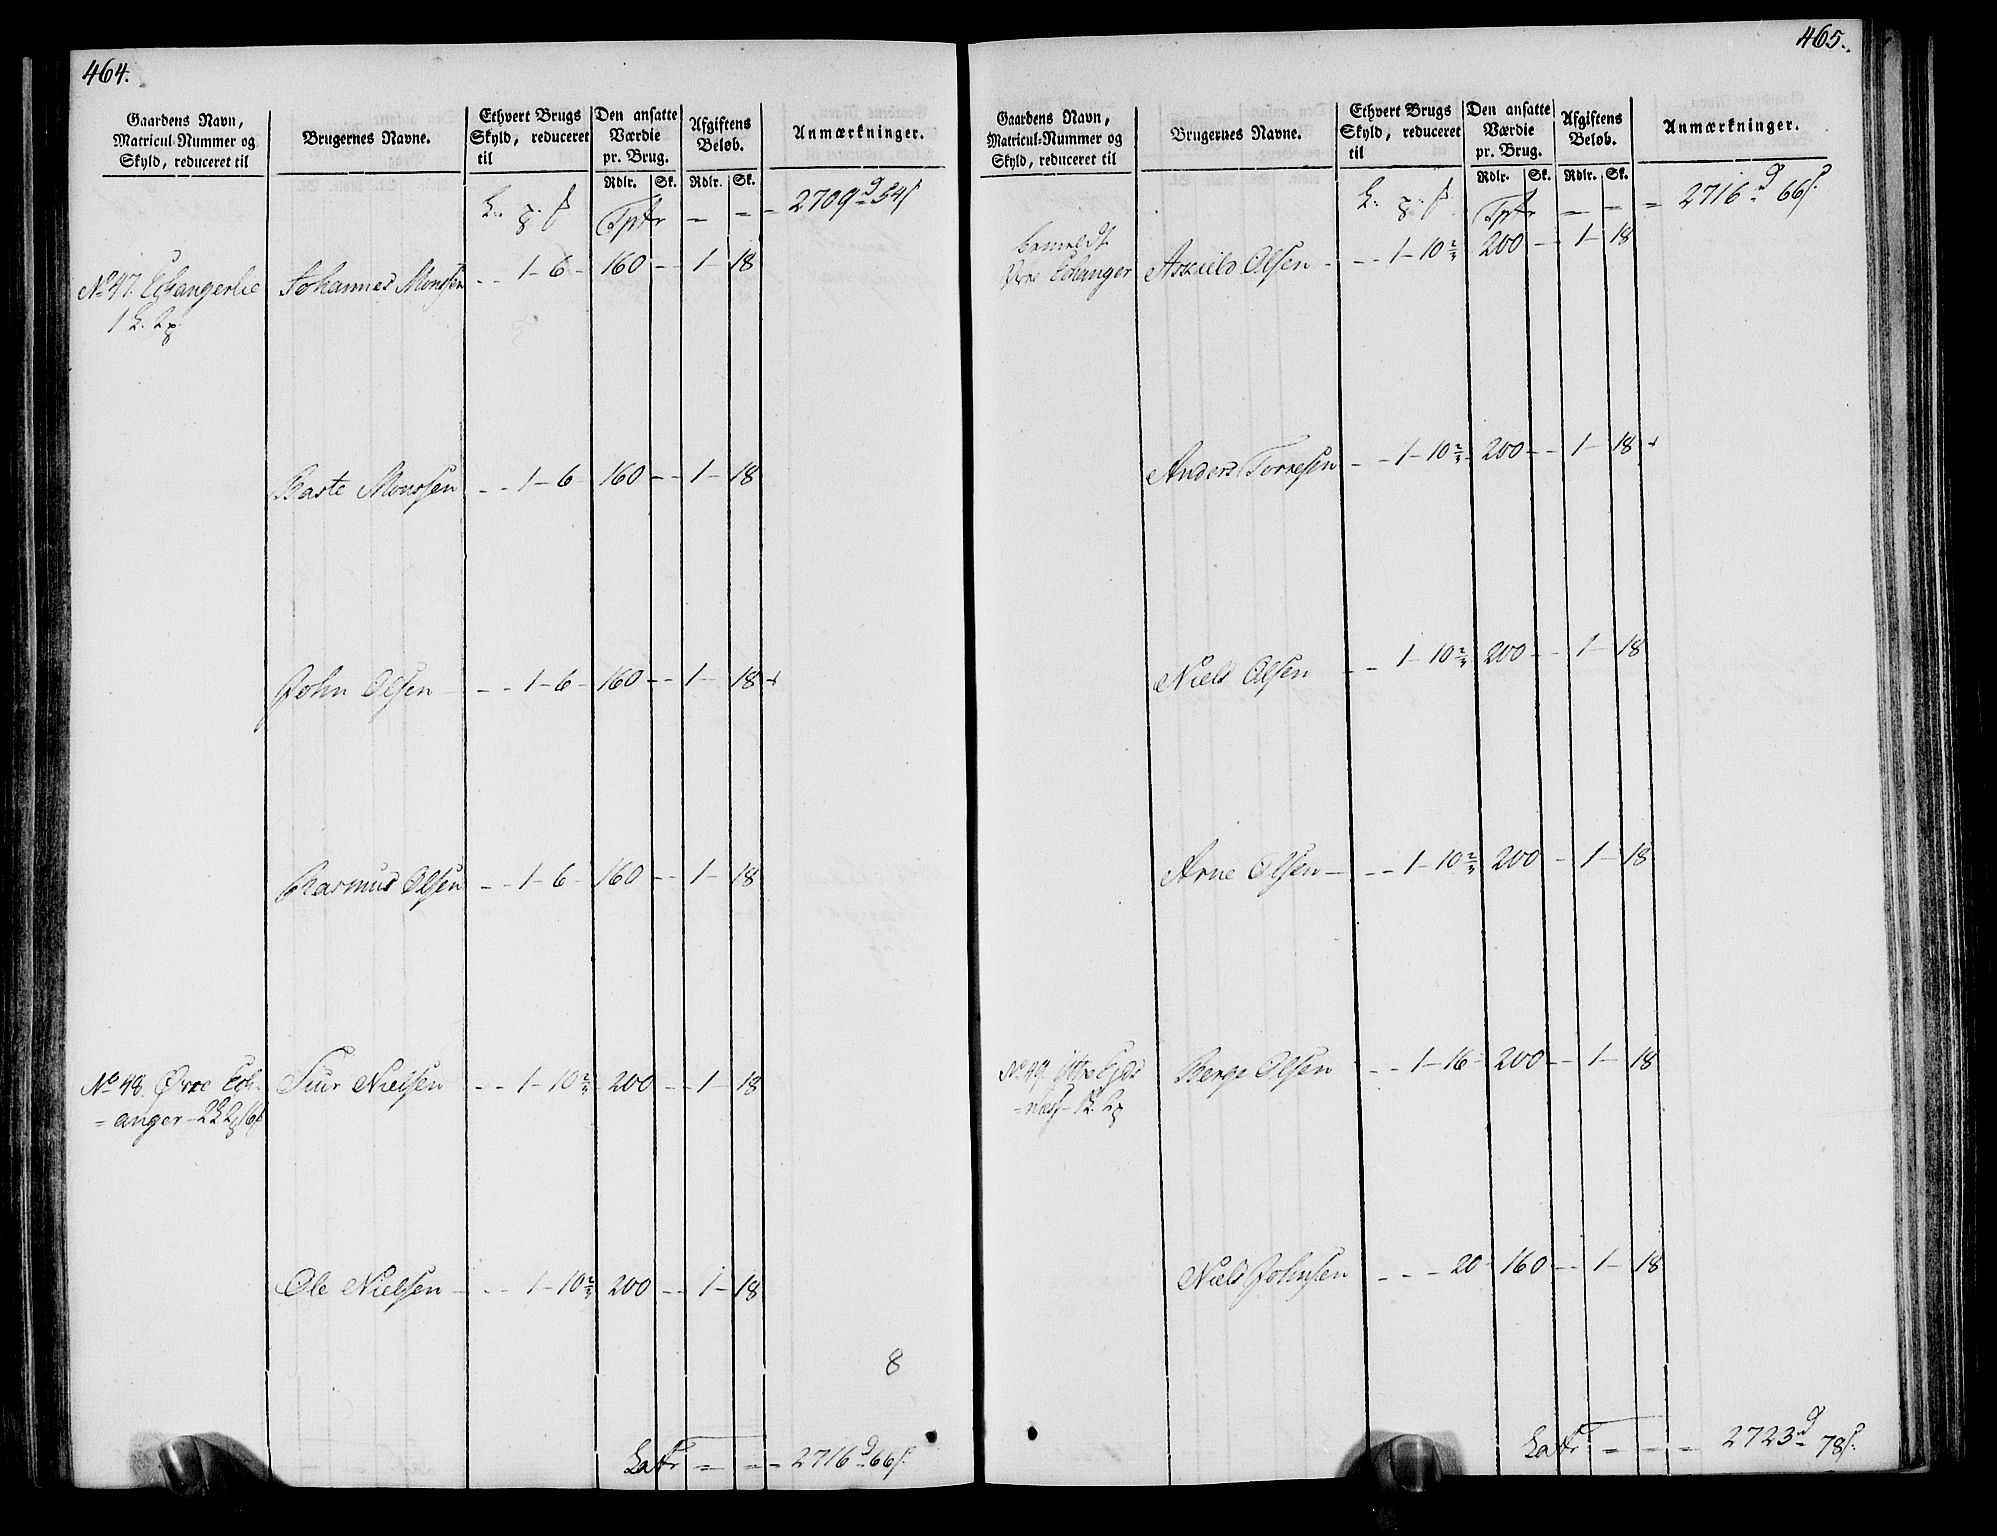 464.
Gaardens Navn,
Matricul-Nummer og
Skyld, reduceret til
Brugernes Navne.
Ethvert Brugs
Skyld, reduceret
til
Den ansatte
Værdie
pr. Brug.
Afgiftens
Beløb.
Anmærkninger.
Rdlr. Sk. Rdlr. Sk.
Tpr - - - 2709 d 54 s
No 47. Echangerlie Johannes Monssen - - 1 - 6 - 160 - - 1 - 18
Baste Monssen - - 1 - 6 - 160 - - 1 - 18
John Olsen - - - 1 - 6 - 160 - - 1 - 18 +
Rasmus Olsen - - 1 - 6 - 160 - - 1 - 18
No 48. Øvre Ech= Siur Nielsen - - 1 - 10 2/3 200 - - 1 - 18
= anger
Ole Nielsen - - - 1 - 10 2/3 200 - - 1 - 18
8
Latr - - - 2716 d 66 s.
465.
Gaardens Navn,
Matricul-Nummer og
Skyld, reduceret til
Brugernes Navne.
Ethvert Brugs
Skyld, reduceret
til
Den ansatte
Værdie
pr. Brug.
Afgiftens
Beløb.
Anmærkninger.
Rdlr. Sk. Rdlr. Sk.
Tpr - - = 2716 d 66 s.
bemeldt
Øvre Echanger Askield Olsen - - - 1 - 10 2/3 200 - - 1 - 18
Anders Torresen - - 1 - 10 2/3 200 - - 1 - 18 +
Niels Olsen - - 1 - 10 2/3 200 - - 1 - 18
Arne Olsen - - - 1 - 10 2/3 200 - 1 - 18
No 49. Berge Olsen - - 1 - 16 - 200 - - 1 - 18
Niels Johnsen - - - 20 - 160 - - 1 - 18
Latr = - - 2723 d 78 s.